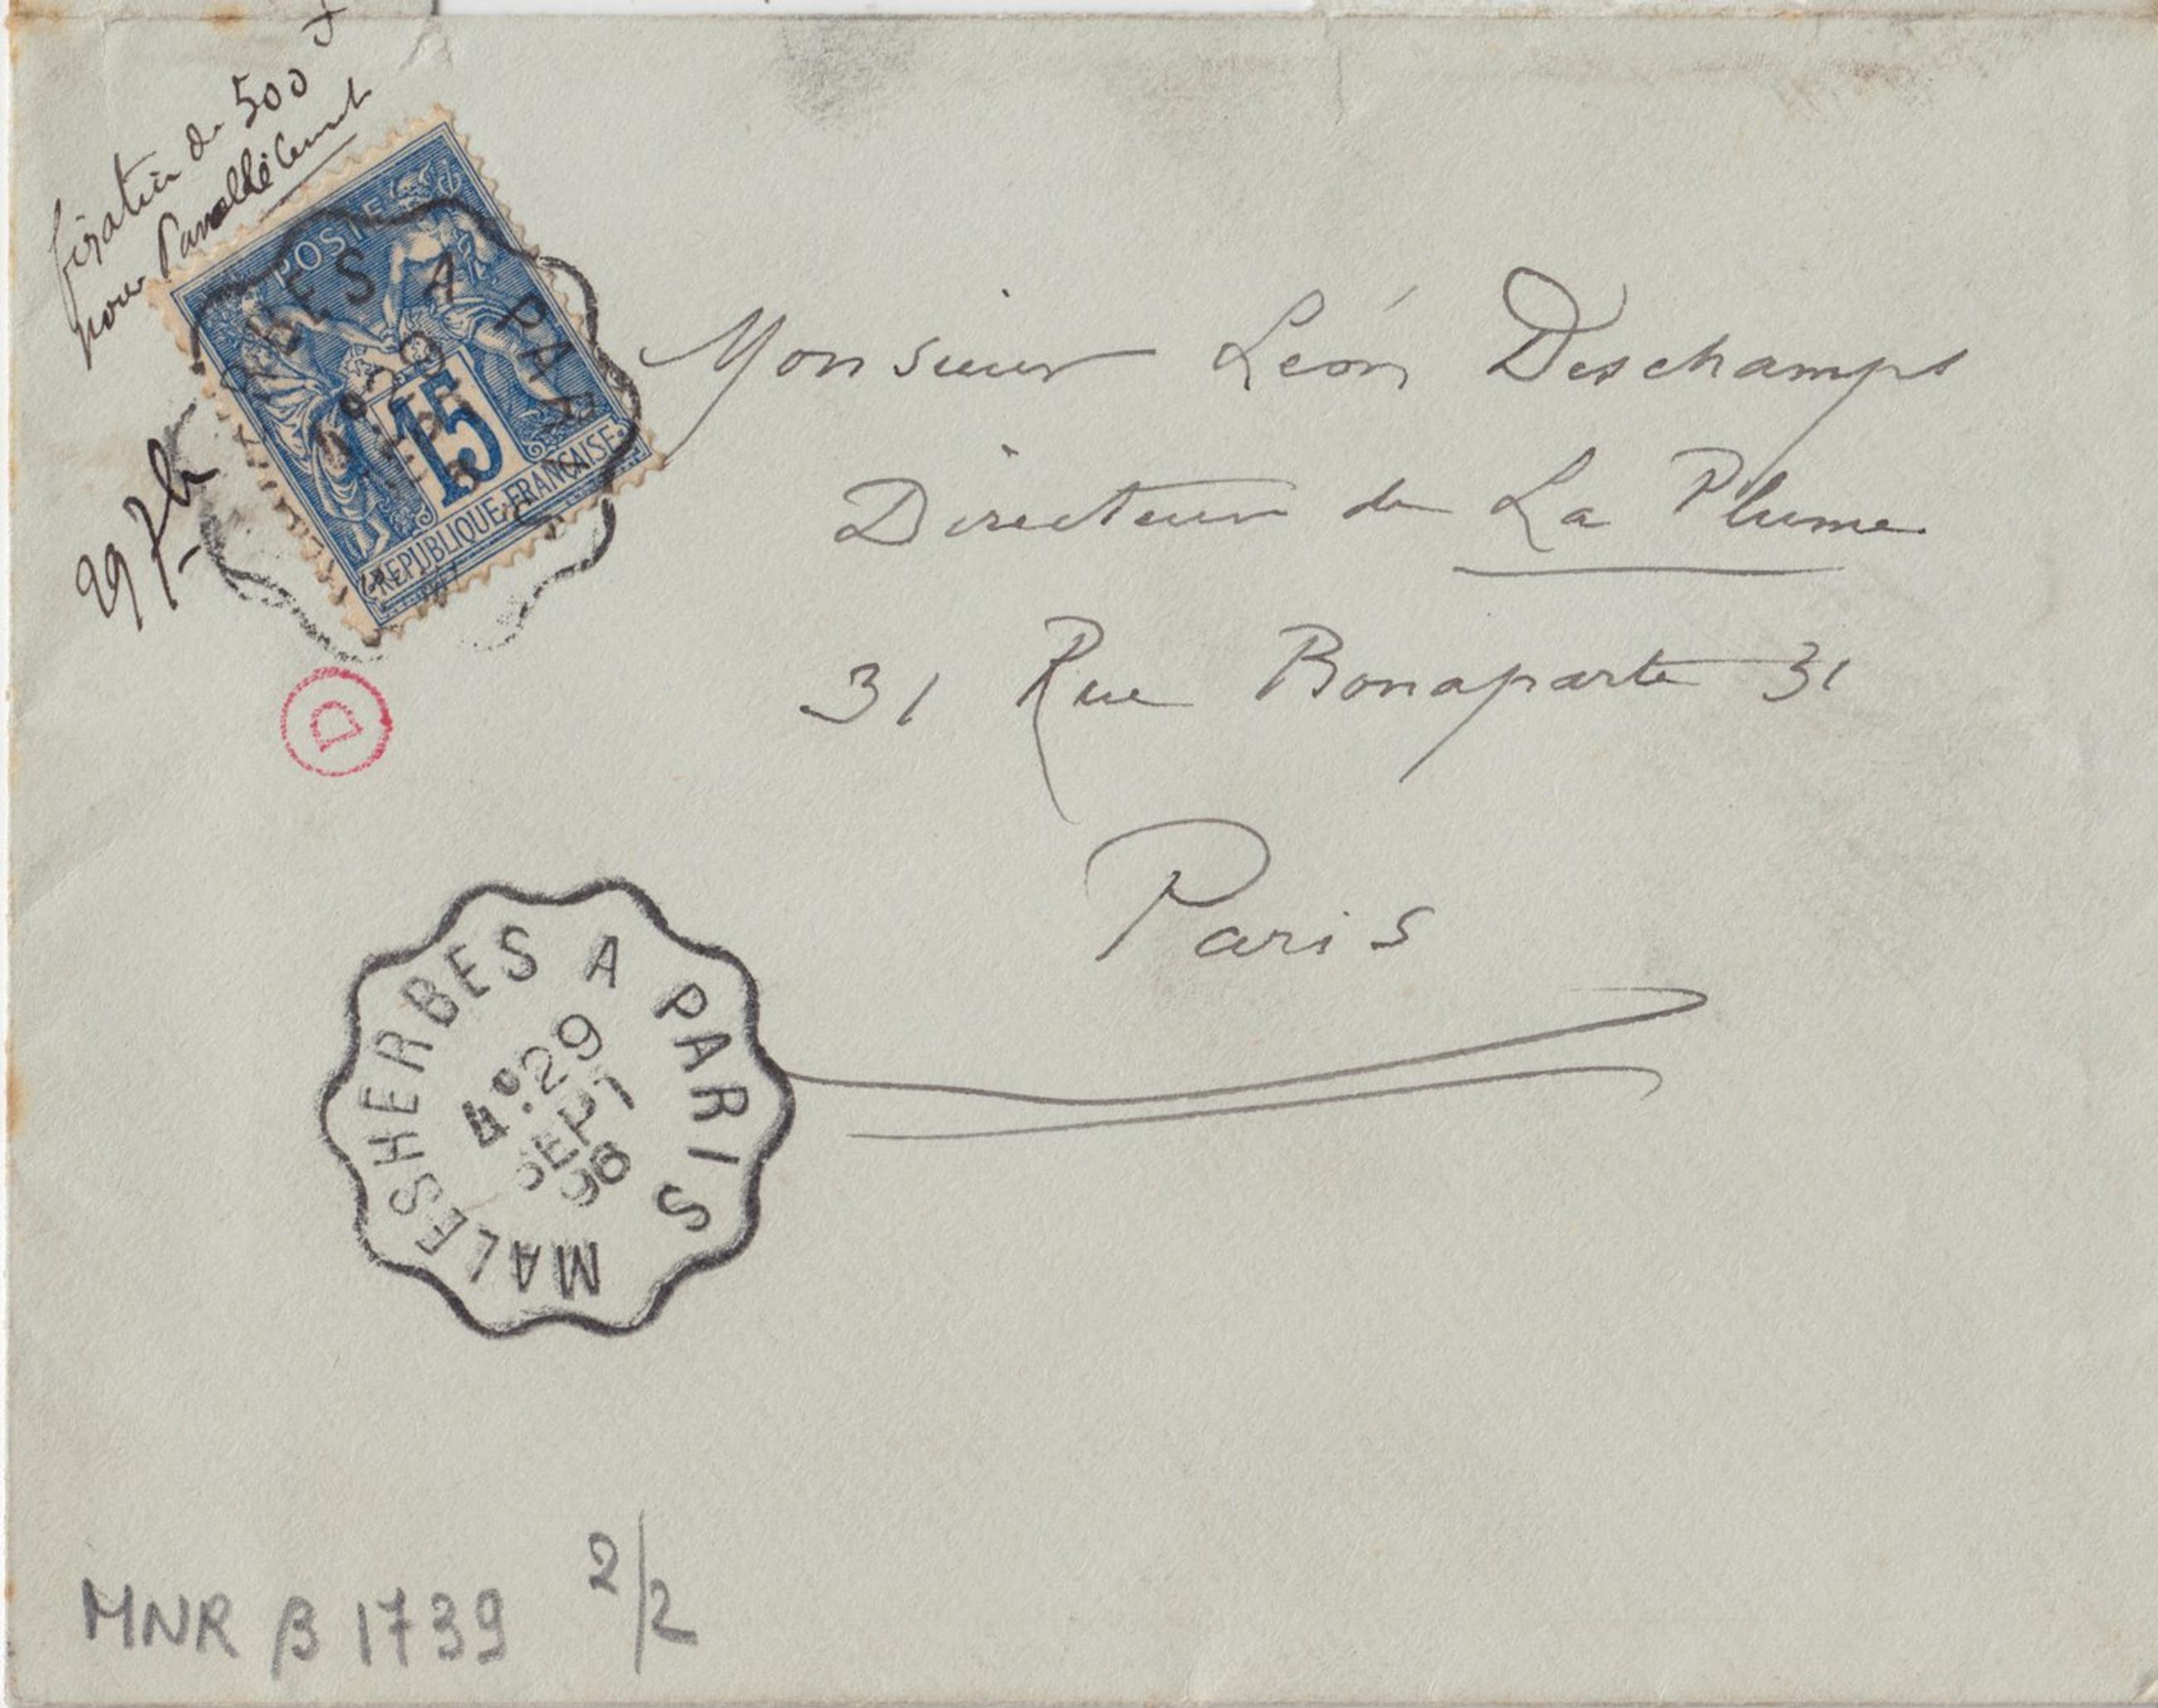 fixation de 500 f
pour
29 7b
POSTES
15
REPUBLIQUE FRANÇAISE
BES A PAR
29
Monsieur Léon Deschamps
Directeur de La Plume
31 Rue Bonaparte 31
Paris
D
MALESHERBES A PARIS
4º 29
SEPT
96
MNR B 1739 2/2